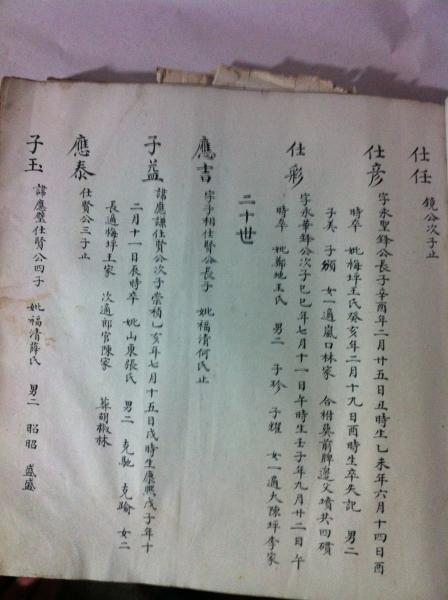 仕任 鏡公次子止
仕彦 字永聖鋒公長子辛酉年二月廿五日丑時生乙未年六月十四日酉
時卒 妣梅坪王氏癸亥年二月十九日酉時生卒失記 男二
子美 子頒 女一適嵐口林家 合柑奠前脾邊父墳共四礦
仕彩 字永華鋒公次子己巳年七月十一日午時生壬子年九月廿二日午
時卒 妣鄭地王氏 男二 子珍 子耀 女一適大陳坪李家
二十世
應吉 字子相仕賢公長子 妣福清何氏止
子益 諱應謙仕賢公次子崇禎乙亥年七月十五日戌時生康熙戊子年十
二月十一日辰時卒 妣山東張氏 男二 克馳 克踰 女二
長適梅坪王家 次適郎官陳家 葬胡椒林
應泰 仕賢公三子止
子玉 諱應璧仕賢公四子 妣福清薛氏 男二 昭昭 盛盛